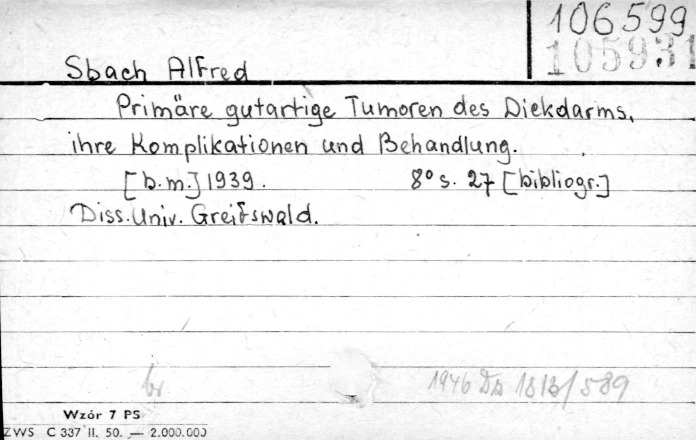 106599
105931
Sbach Alfred
Primäre gutartige Tumoren des Diekdarms,
ihre Komplikationen und Behandlung.
[b.m.] 1939. 8° s. 27 [bibliogr.]
Diss. Univ. Greifswald.
br
1946 1813/589
Wzór 7 PS
ZWS C 337 II. 50. — 2.000.000